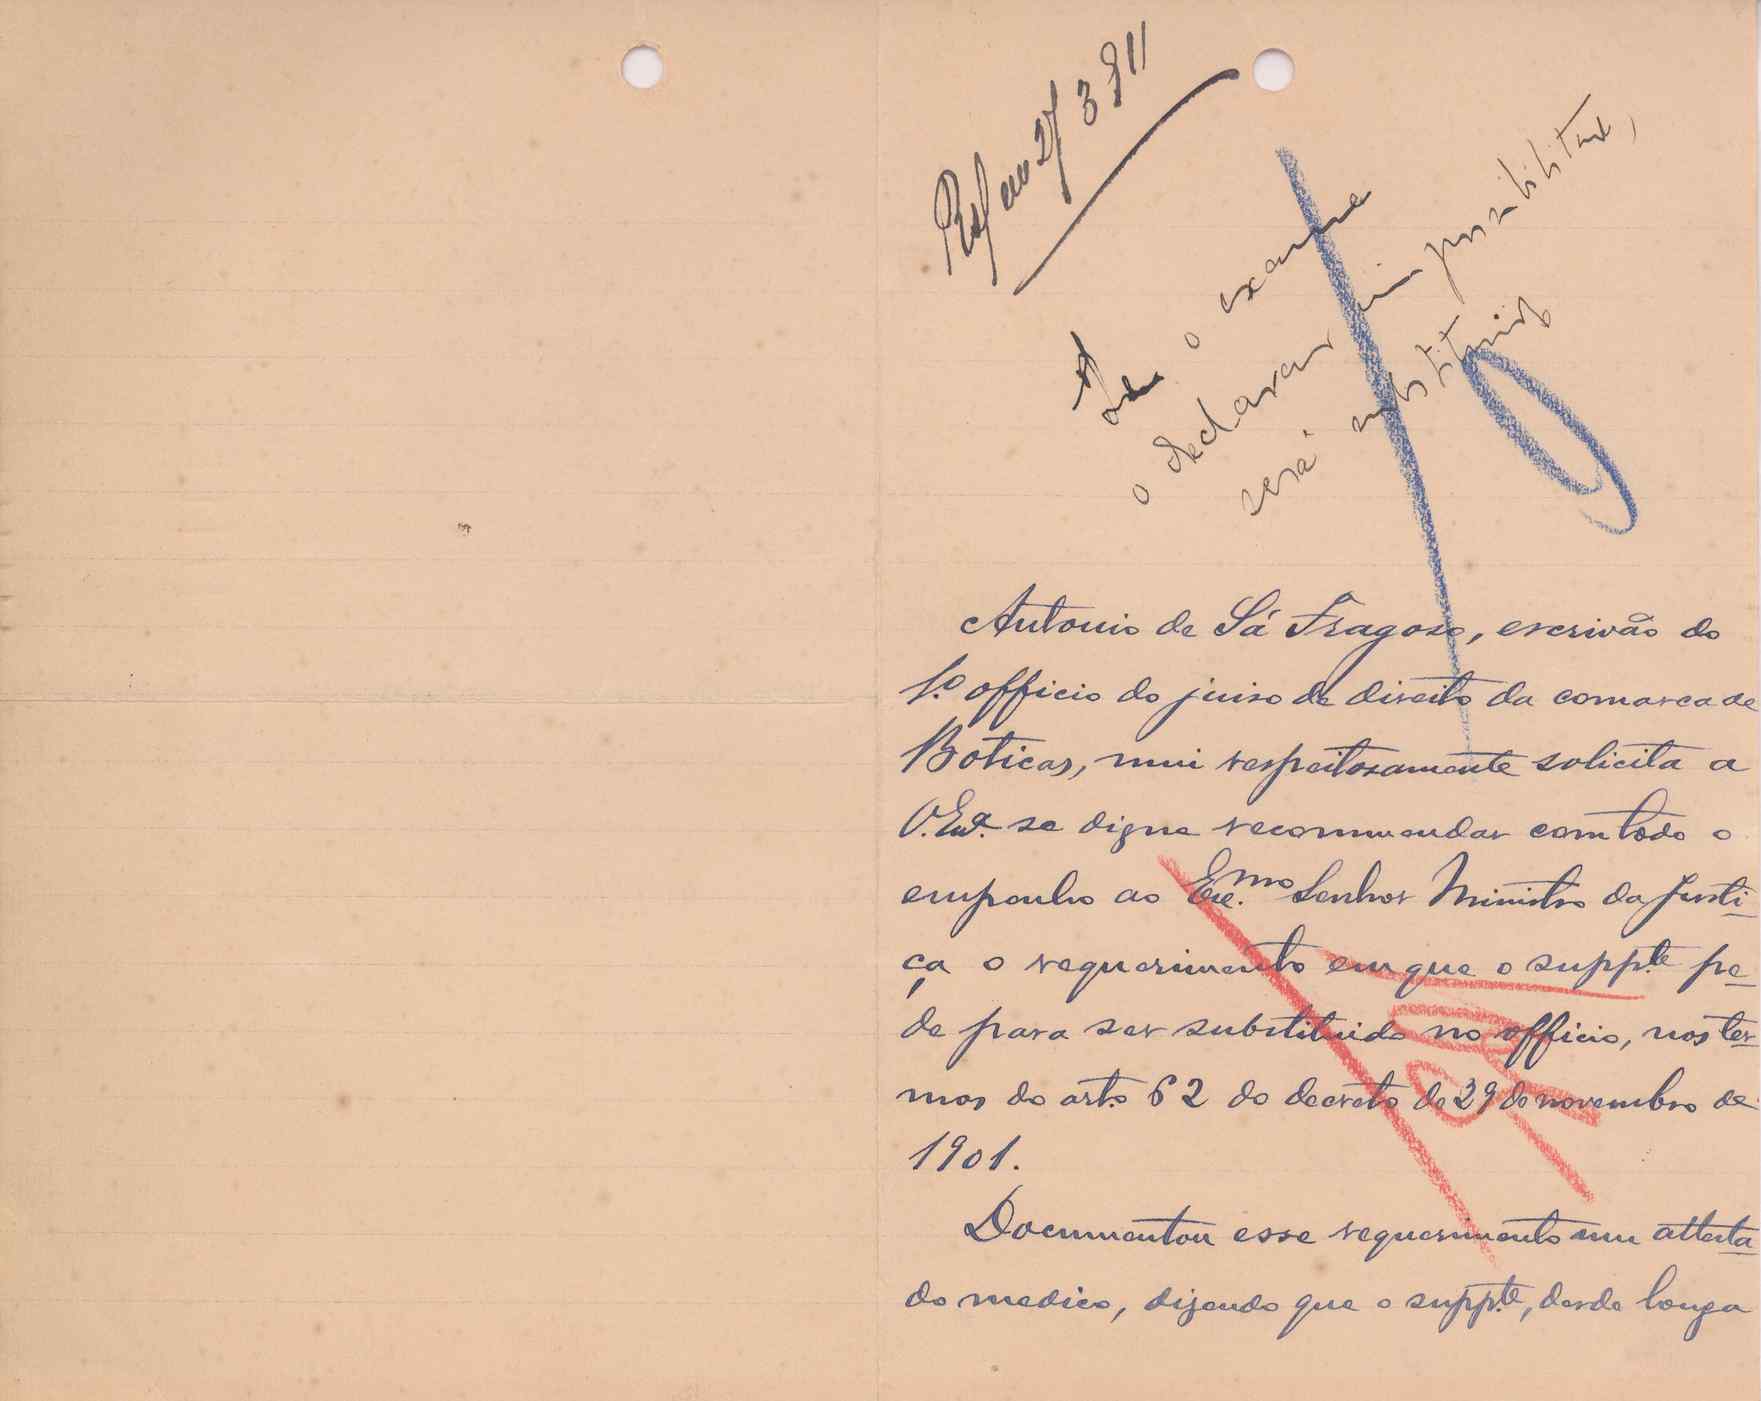 Resp em 27 3 911
o exame
o declarar impossibilitado,
será substituido
Antonio de Sá Fragoso, escrivão do
1.º officio do juiso de direito da comarca de
Boticas, mui respeitosamente solicita a
V. Exª. se digne recommendar com todo o
empenho ao Exc.mo Senhor Ministro da Justi-
ça o requerimento em que o supp.te pe-
de para ser substituido no officio, nos ter-
mos do art.º 62 do decreto de 29 de novembro de
1901.
Documentou esse requerimento um attesta-
do medico, dizendo que o supp.te, desde longa